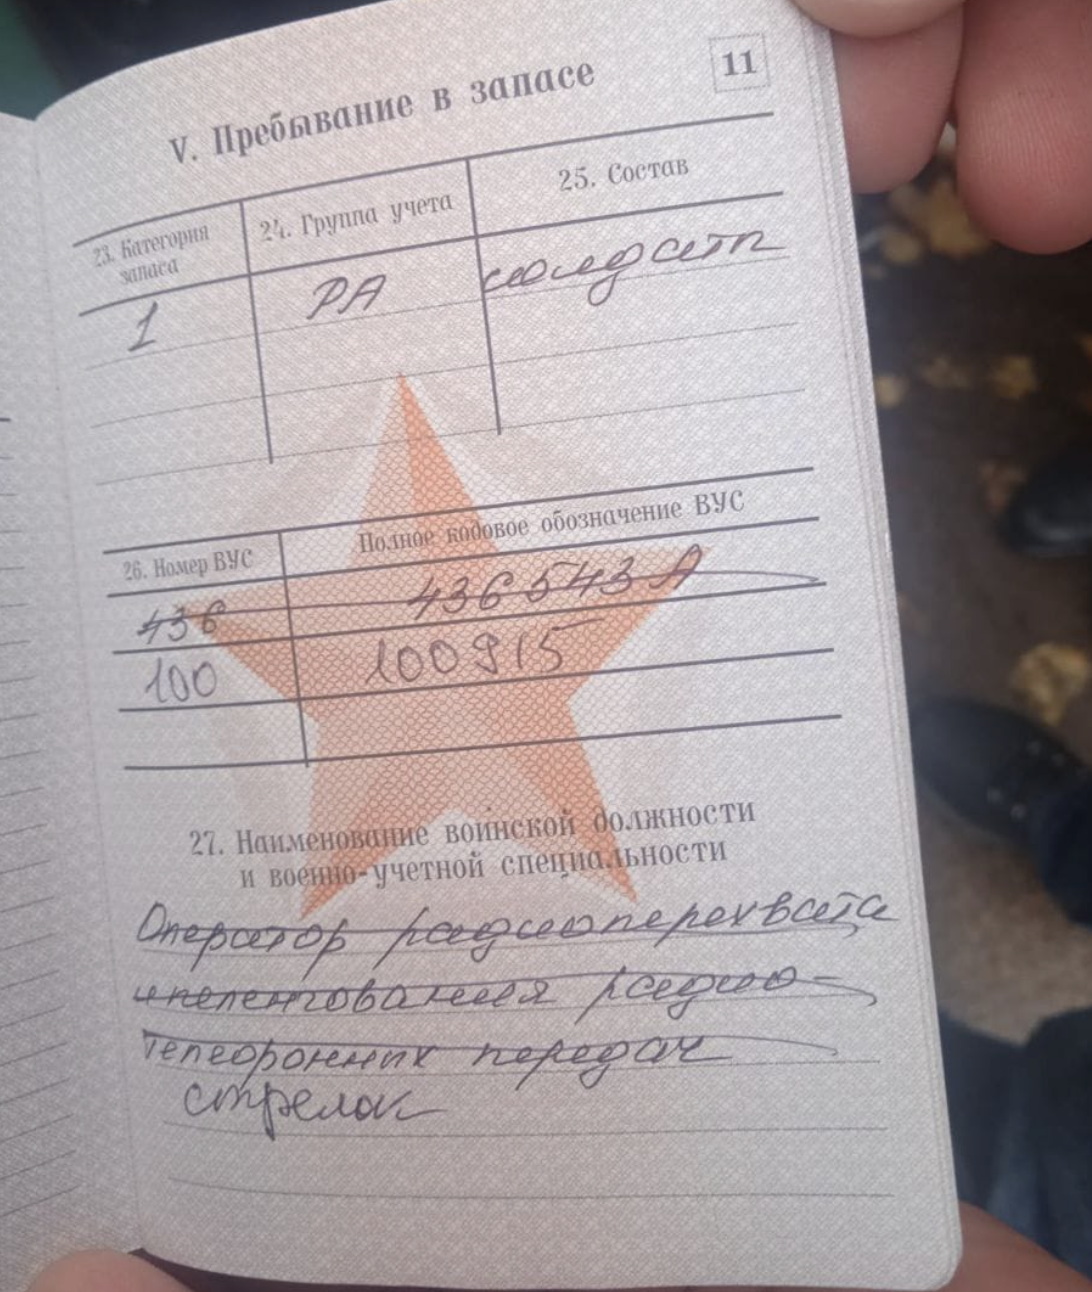 11
V. Пребывание в запасе
23. Категория запаса
24. Группа учета
25. Состав
1
РА
солдаты
26. Номер ВУС
Полное кодовое обозначение ВУС
436
436543А
100
100915
27. Наименование воинской должности
и военно-учетной специальности
Оператор радиоперехвата
и пеленгования радио-
телефонных передач
стрелок